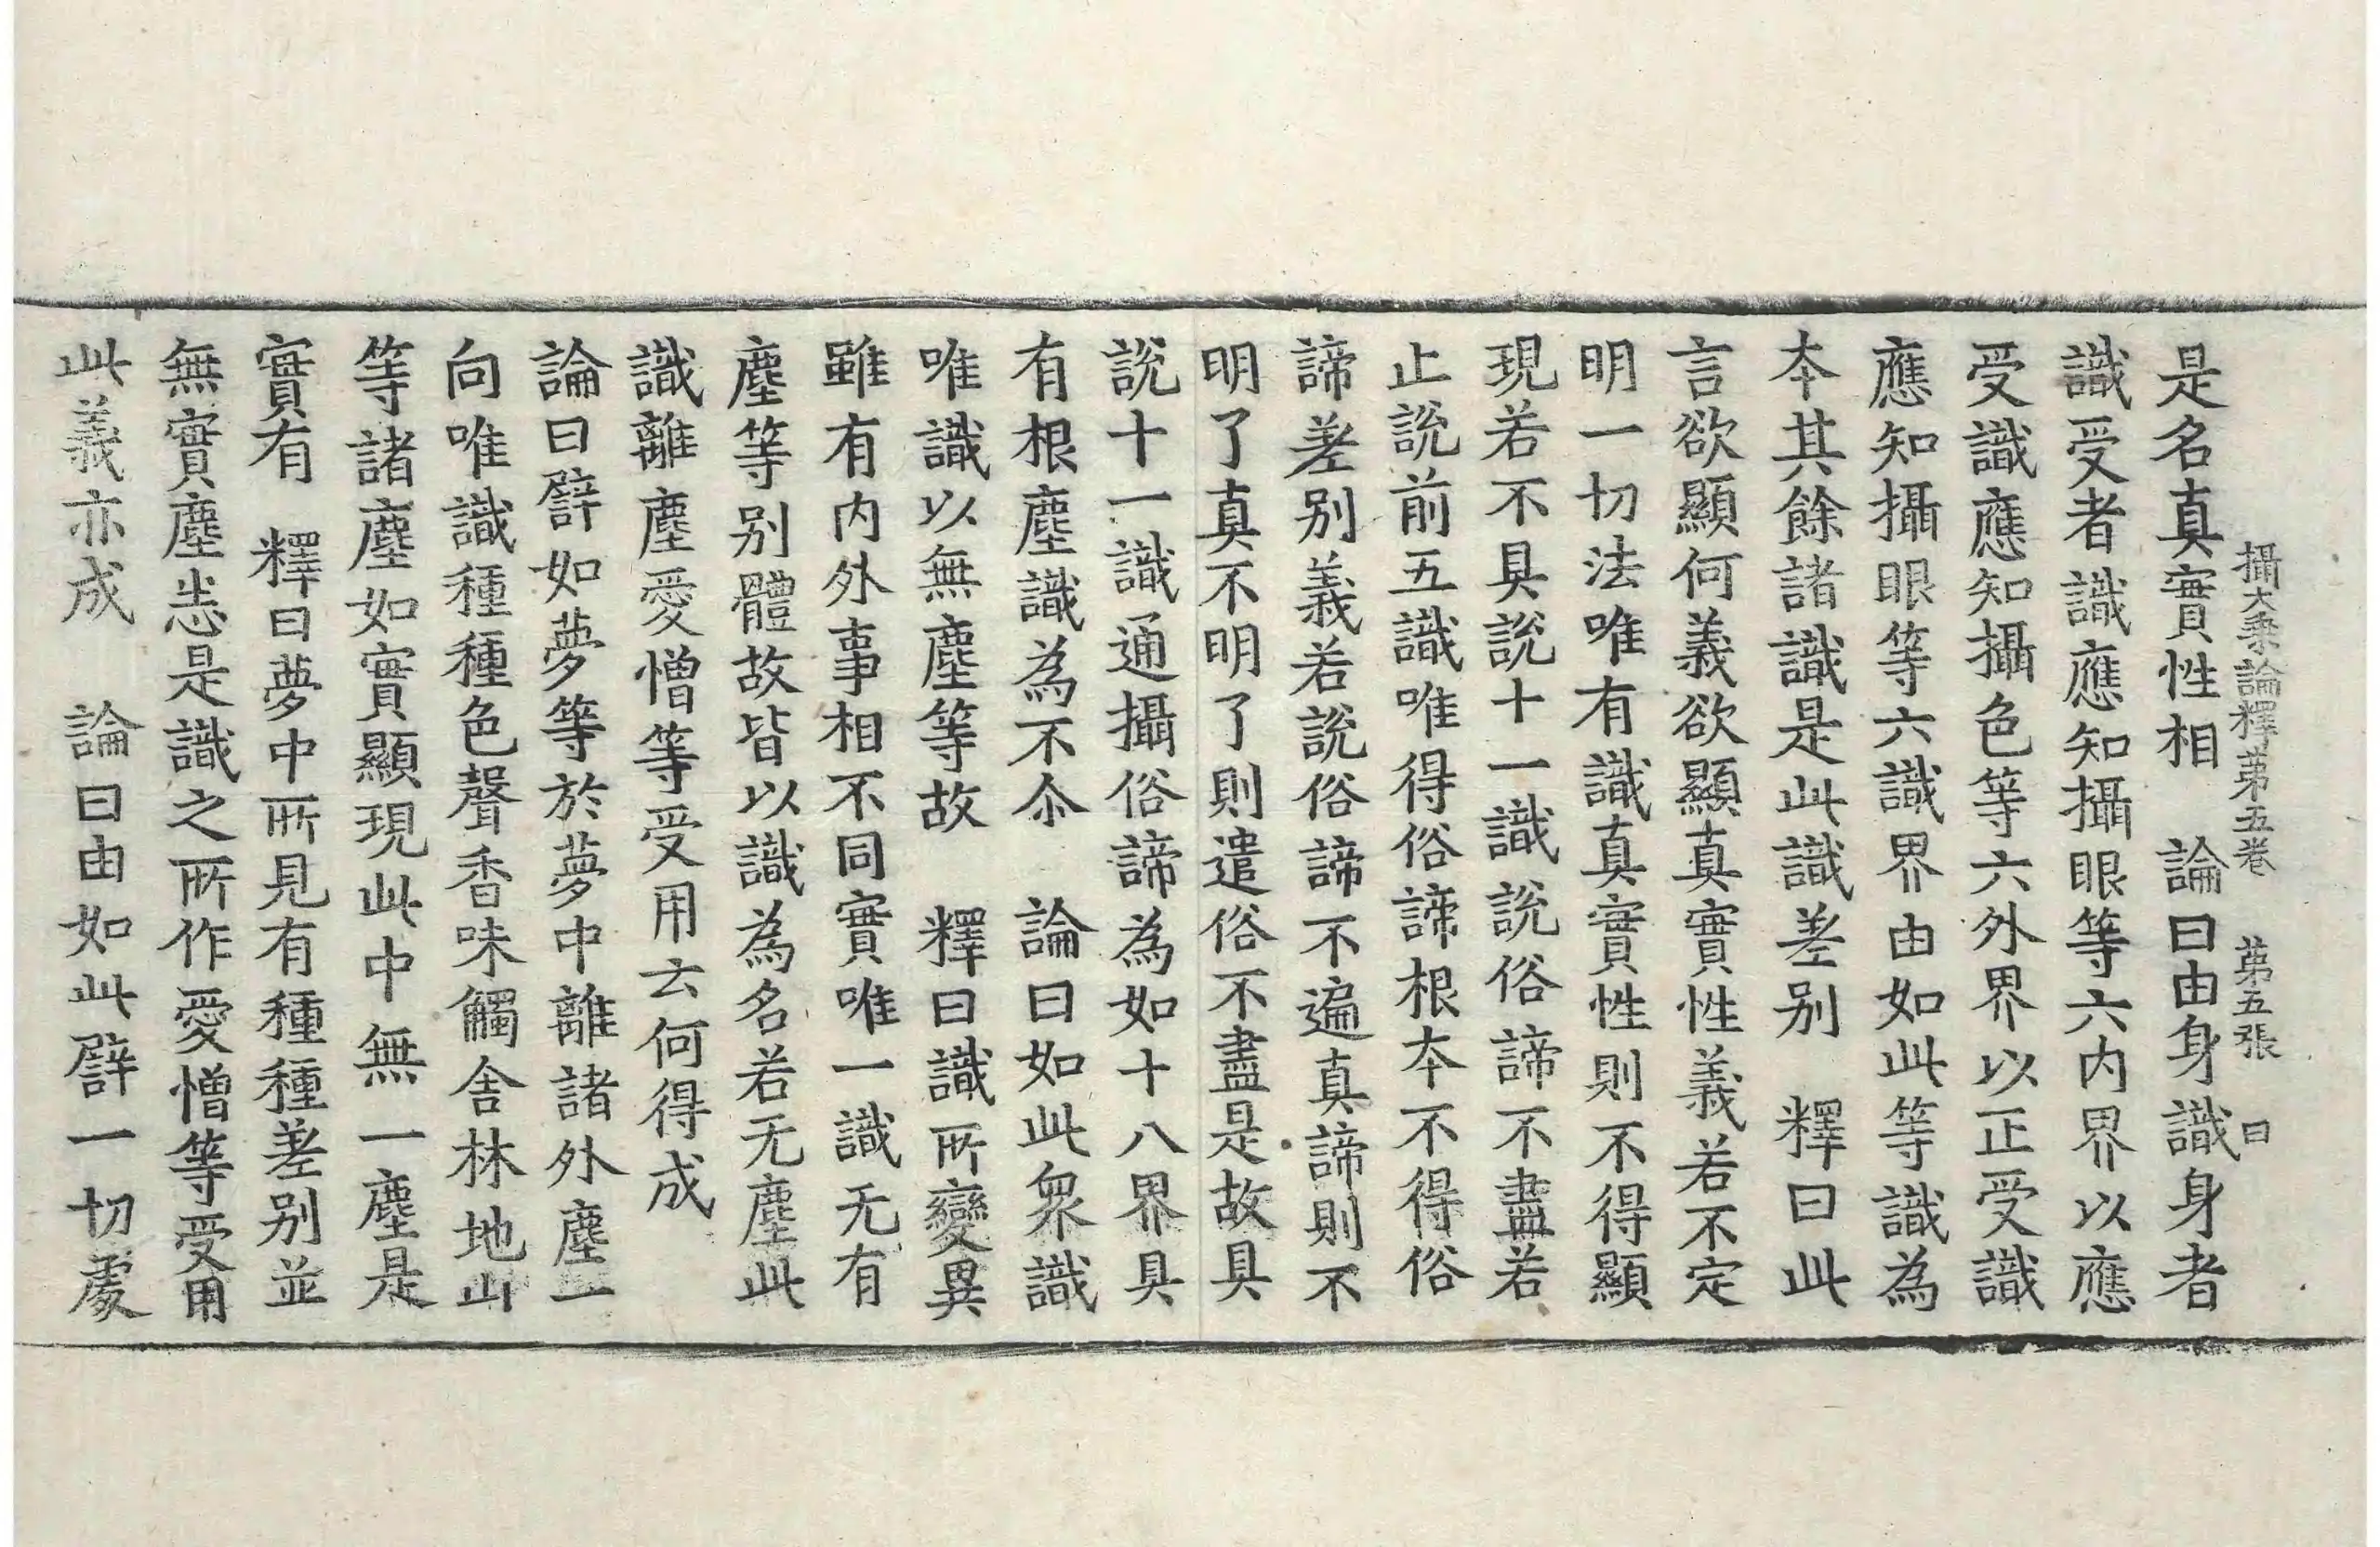 攝大乘論釋第五卷 第五張 曰
是名真實性相 論曰由身識身者
識受者識應知攝眼等六内界以應
受識應知攝色等六外界以正受識
應知攝眼等六識界由如此等識為
本其餘諸識是此識差别 釋曰此
言欲顯何義欲顯真實性義若不定
明一切法唯有識真實性則不得顯
現若不具說十一識說俗諦不盡若
止說前五識唯得俗諦根本不得俗
諦差别義若說俗諦不遍真諦則不
明了真不明了則遣俗不盡是故具
說十一識通攝俗諦為如十八界具
有根塵識為不尒 論曰如此衆識
唯識以無塵等故 釋曰識所變異
雖有内外事相不同實唯一識无有
塵等别體故皆以識為名若无塵此
識離塵愛憎等受用云何得成
論曰譬如夢等於夢中離諸外塵一
向唯識種種色聲香味觸舍林地山
等諸塵如實顯現此中無一塵是
實有 釋曰夢中所見有種種差别並
無實塵悉是識之所作愛憎等受用
此義亦成 論曰由如此譬一切處